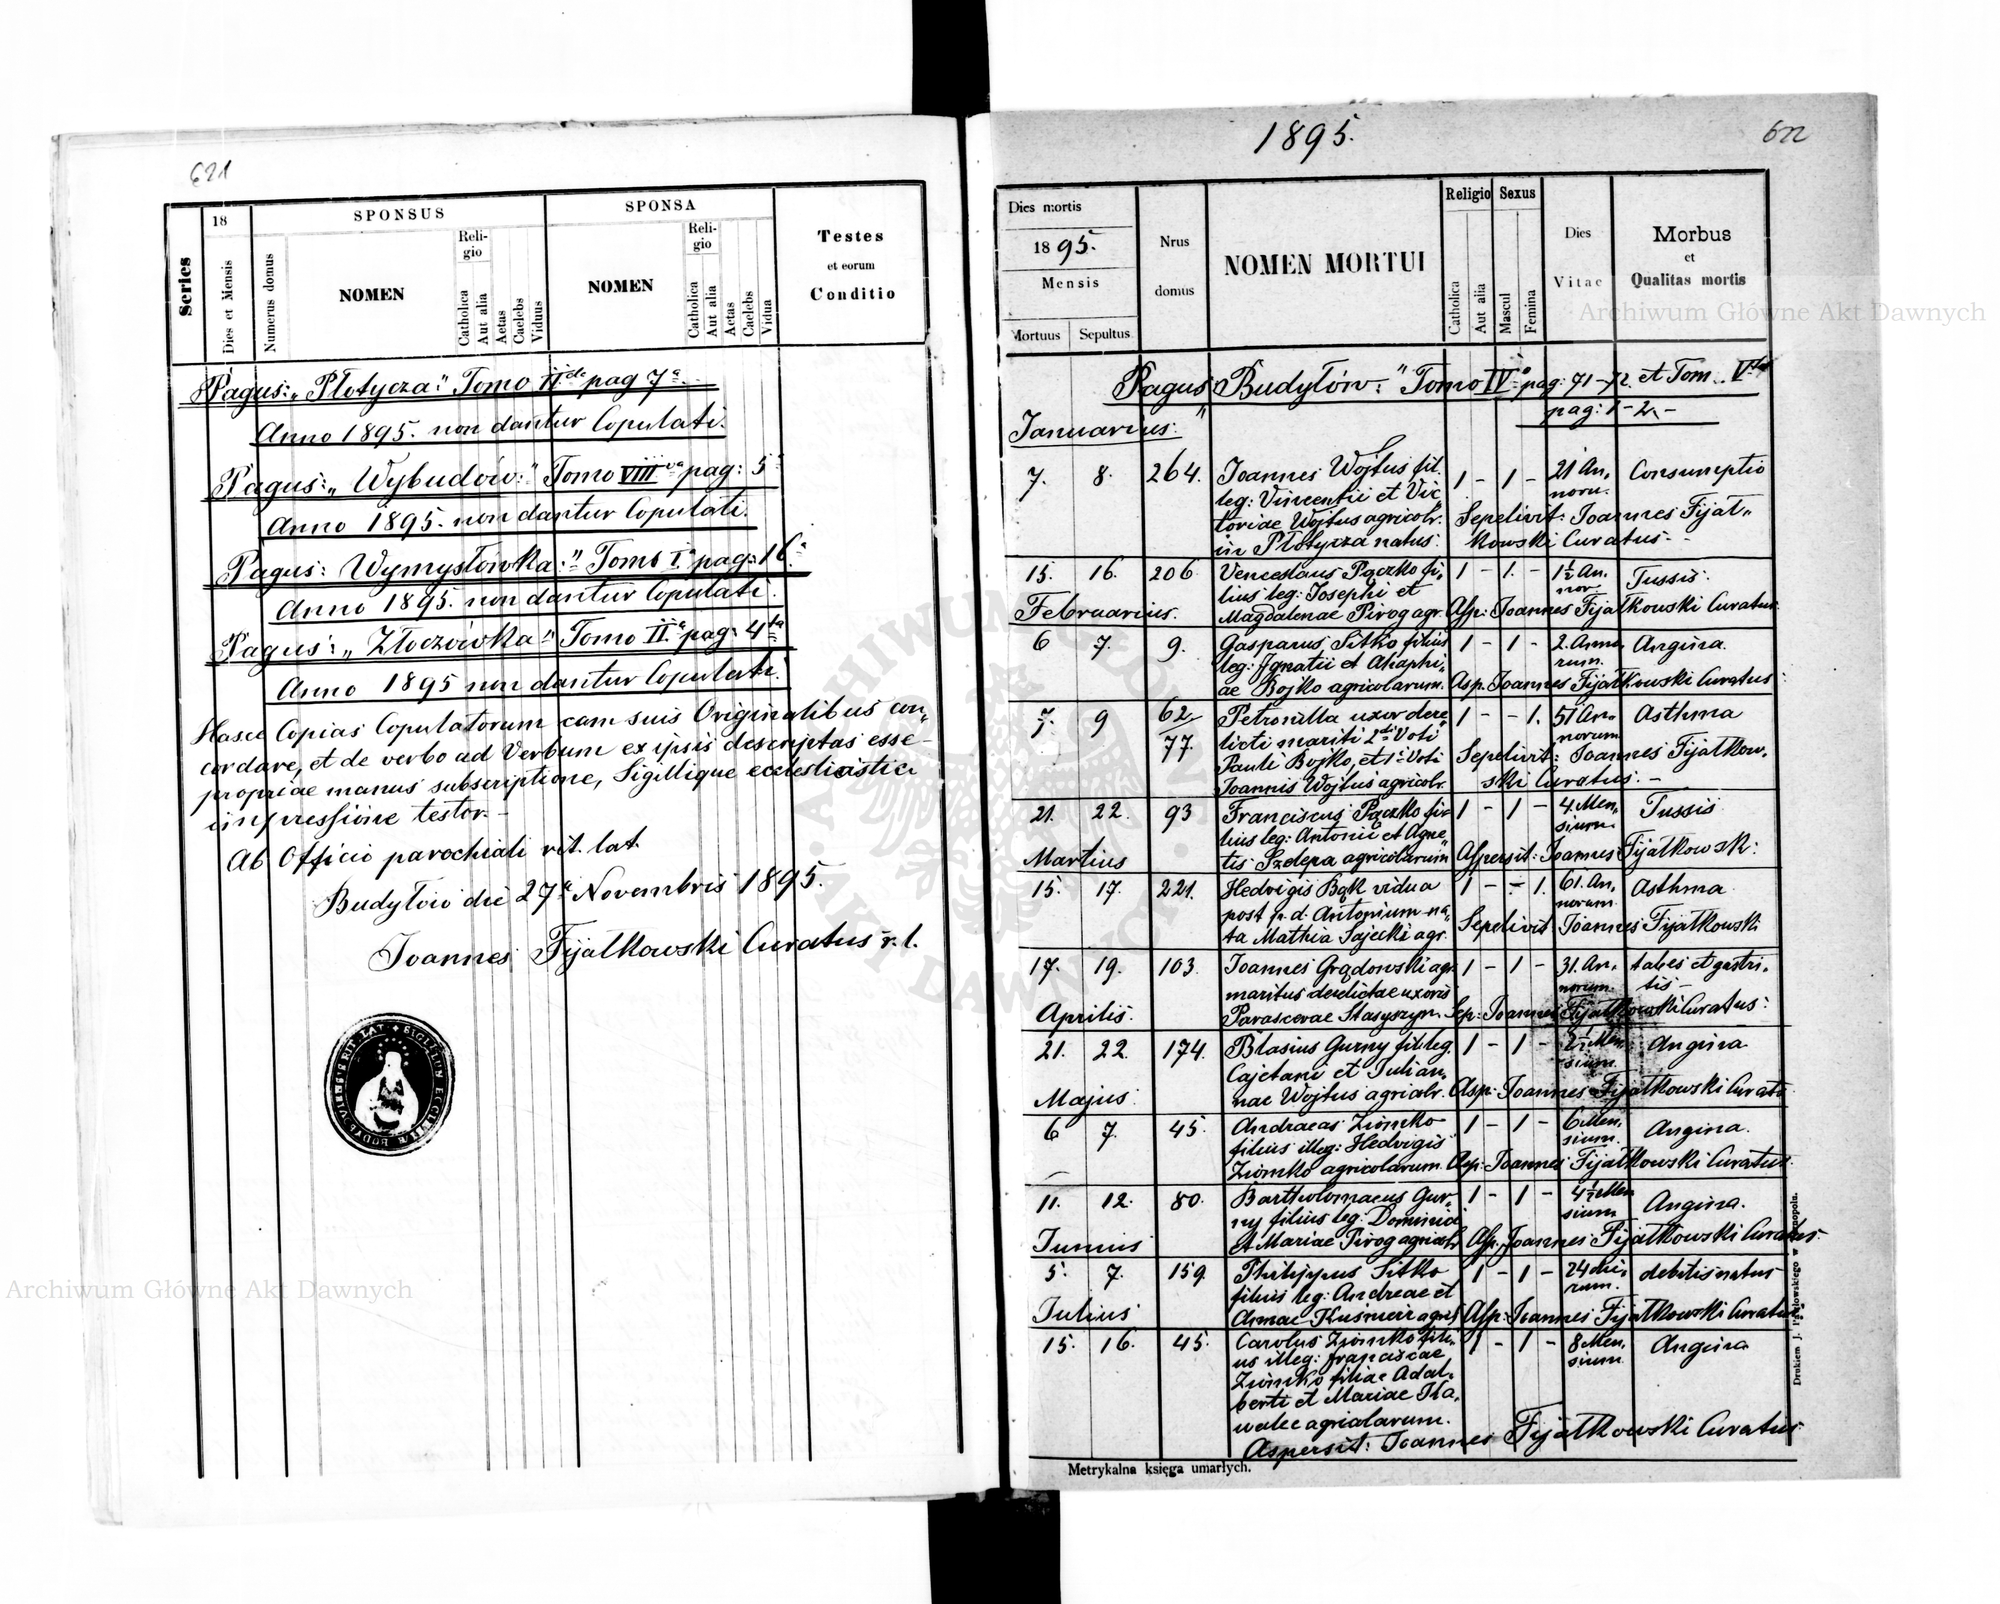 621
Series
18
Dies et Mensis
Numerus domus
SPONSUS
NOMEN
Reli-
gio
Catholica
Aut alia
Aetas
Caelebs
Viduus
SPONSA
NOMEN
Reli-
gio
Catholica
Aut alia
Aetas
Caelebs
Vidua
Testes
et eorum
Conditio
Pagus: „Płotycza:" Tomo II do pag 7a
Anno 1895. non dantur Copulati.
Pagus: „Wybudów:" Tomo VIII va pag: 5
Anno 1895. non dantur Copulati.
Pagus: Wymysłówka:" Tomo I. pag: 16
Anno 1895. non dantur Copulati.
Pagus: „Złoczówka" Tomo II. pag: 4ta
Anno 1895 non dantur Copulati.
Hasce Copias Copulatorum cum suis Originalibus con„
cordare, et de verbo ad Verbum ex ipsis descriptas esse
propriae manus subscriptione, Sigillique ecclesiastici
impressione testor.-
Ab Officio parochiali rit. lat.
Budyłow die 27a Novembris 1895.
Joannes Fijałkowski Curatus r. l.
1895.
622
Dies mortis
1895.
Mensis
Mortuus
Sepultus
Nrus
domus
NOMEN MORTUI
Religio
Catholica
Aut alia
Sexus
Mascul
Femina
Dies
Vitae
Morbus
et
Qualitas mortis
Pagus „Budyłów:" Tomo IV pag: 71-72. et Tom. V
pag: 1-2.-
Januarius:
7. 8. 264. Joannes Wojtus fil. 1 - 1 - 21 An, Consumptio
leg: Vincentii et Vic norum.
toriae Wojtus agricolr. Sepelivit: Joannes Fijał„
in Płotycza natus: kowski Curatus.-
15. 16. 206 Venceslaus Pączko fi„ 1 - 1. - 1½ An. Tussis.
lius leg: Josephi et nor.
Februarius. Magdalenae Pirog agr. Asp: Joannes Fijałkowski Curatus
6 7. 9. Gasparus Sitko filius 1 - 1 - 2. Anno Angina.
leg: Ignatii et Ahaphi„ rum.
ae Bojko agricolarum. Asp. Joannes Fijałkowski Curatus
7. 9 62/77. Petronilla uxor dere„ 1 - - 1. 51 An. Asthma
licti mariti 2di Voti norum
Pauli Bojko, et 1i Voti Sepelivit: Joannes Fijałkow.
Joannis Wojtus agricolr. ski Curatus.-
21. 22. 93 Franciscus Pączko fi„ 1 - 1 - 4 Men, Tussis
lius leg: Antonii et Agne„ sium.
Martius tis Szdepa agricolarum Aspersit: Joannes Fijałkowski.
15. 17. 221. Hedvigis Bąk vidua 1 - - 1. 61. An, Asthma
post p. d. Antonium na„ norum.
ta Mathia Sajecki agr. Sepelivit Joannes Fijałkowski
17. 19. 103. Joannes Grądowski agr. 1 - 1 - 31. An. tabes et gastri„
maritus derelictae uxoris norum. tis-
Aprilis. Parascevae Stasyszyn. Sep: Joannes Fijałkowski Curatus.
21. 22. 174. Blasius Gurny fil. leg. 1 - 1 - Men, Angina
Cajetani et Julian„ sium.
Majus nae Wojtus agricolr. Asp: Joannes Fijałkowski Curatu
6 7. 45. Andraeas Ziomko 1 - 1 - 6 Men, Angina.
filius illeg: Hedvigis sium.
Ziomko agricolarum. Asp: Joannes Fijałkowski Curatus.
11. 12. 80. Bartholomaeus Gur„ 1 - 1 - 4½ Men Angina.
ny filius leg: Dominici sium
Junius et Mariae Pirog agricolr Asp. Joannes Fijałkowski Curatus.
5. 7. 159. Philippus Sitko 1 - 1 - 24 die, debilis natus
filius leg: Andreae et rum.
Julius Annae Kuśmier agricl Asp: Joannes Fijałkowski Curatus
15. 16. 45. Carolus Ziomko fili„ 1 - 1 - 8 Men, Angina
us illeg: Franciscae sium
Ziomko filiae Adal„
berti et Mariae Ha„
walec agricolarum.
Aspersit: Joannes Fijałkowski Curatus
Metrykalna księga umarłych.
Drukiem J. Pawłowskiego w Tarnopolu.
Archiwum Główne Akt Dawnych
Archiwum Główne Akt Dawnych
ARCHIWUM GŁÓWNE AKT DAWNYCH